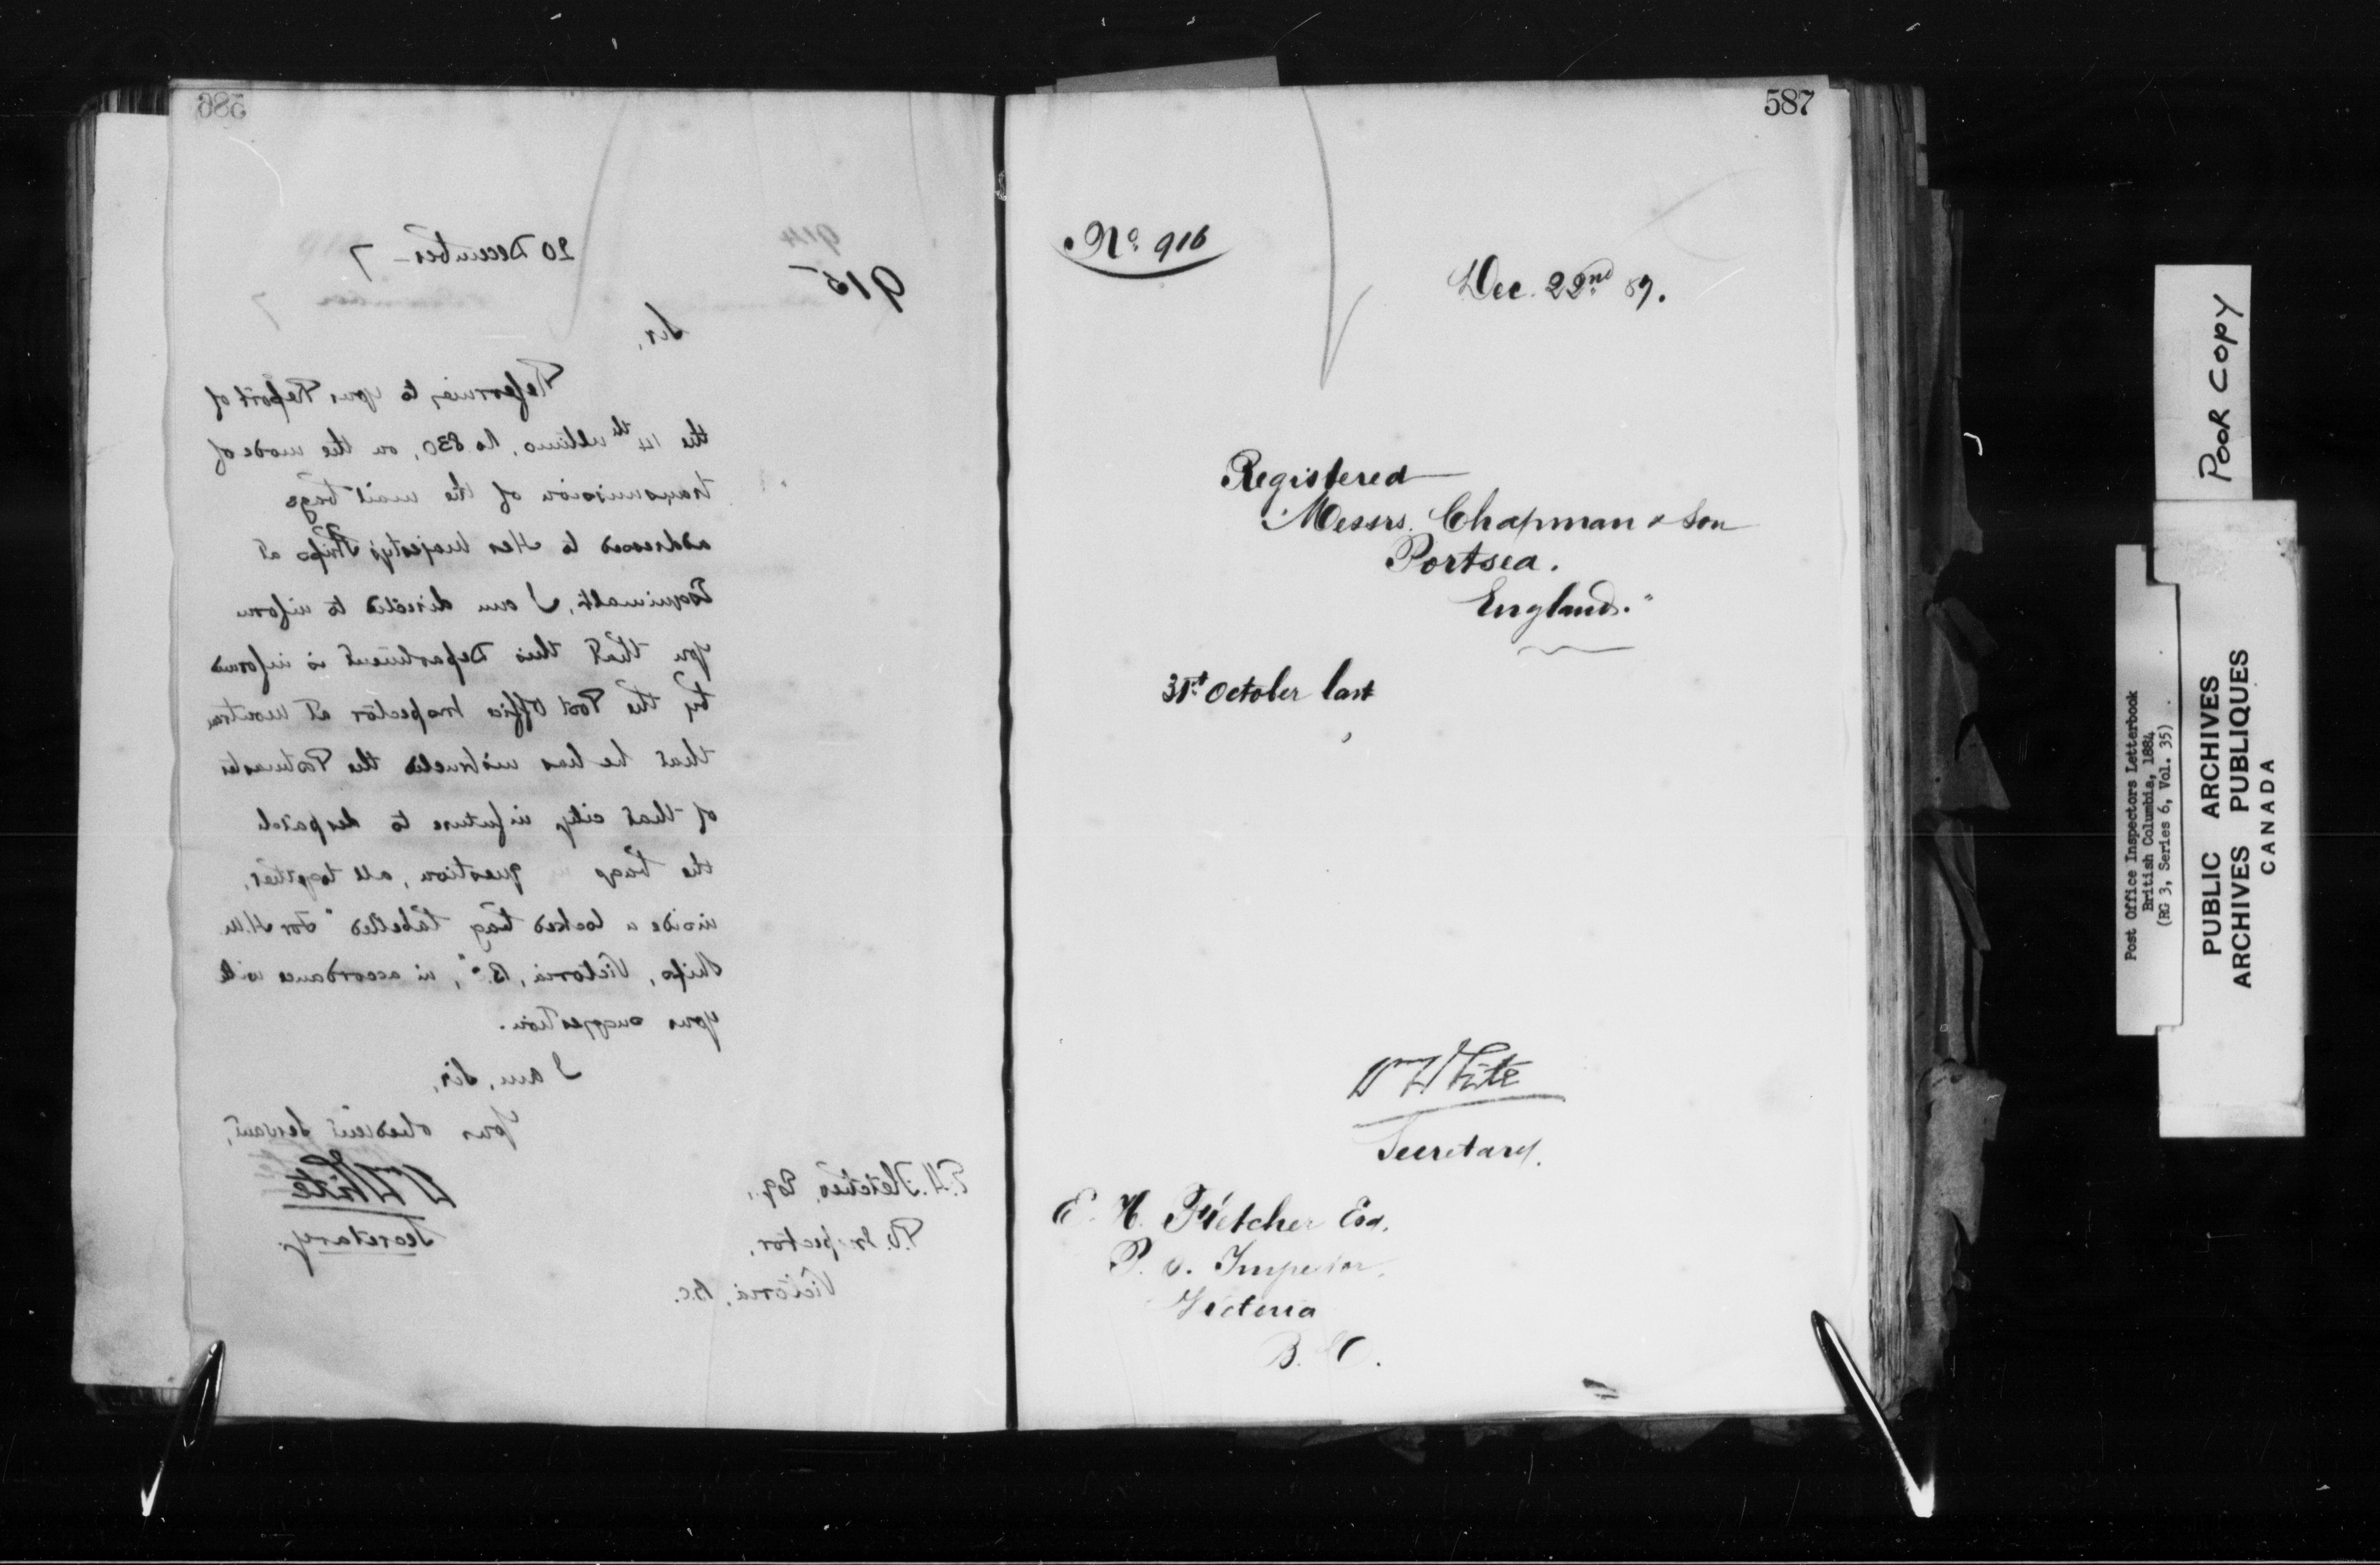 586
914
915
20 December 7
Sir,
Referring to your Report of
the 14th ultimo, No 830, on the mode of
transmission of the mail bags
addressed to Her Majesty's Ships at
Esquimalt, I am directed to inform
you that this Department is informed
by the Post Office Inspector at Montreal
that he has instructed the Postmaster
of that city in future to despatch
the bags in question, all together,
inside a locked bag labelled "For H.M.
Ships, Victoria, B.C.", in accordance with
your suggestion.
I am, Sir,
Your obedient Servant,
Wm White
Secretary.
E.H. Fletcher, Esq.,
P.O. Inspector,
Victoria, B.C.
587
No. 916
Dec. 22nd 87.
Registered
Messrs. Chapman & Son
Portsea.
England."
31st October last
Wm White
Secretary.
E. H. Fletcher Esq.
P. O. Inspector.
Victoria
B. C.
POOR COPY
Post Office Inspectors Letterbook
British Columbia, 1884
(RG 3, Series 6, Vol. 35)
PUBLIC ARCHIVES
ARCHIVES PUBLIQUES
CANADA